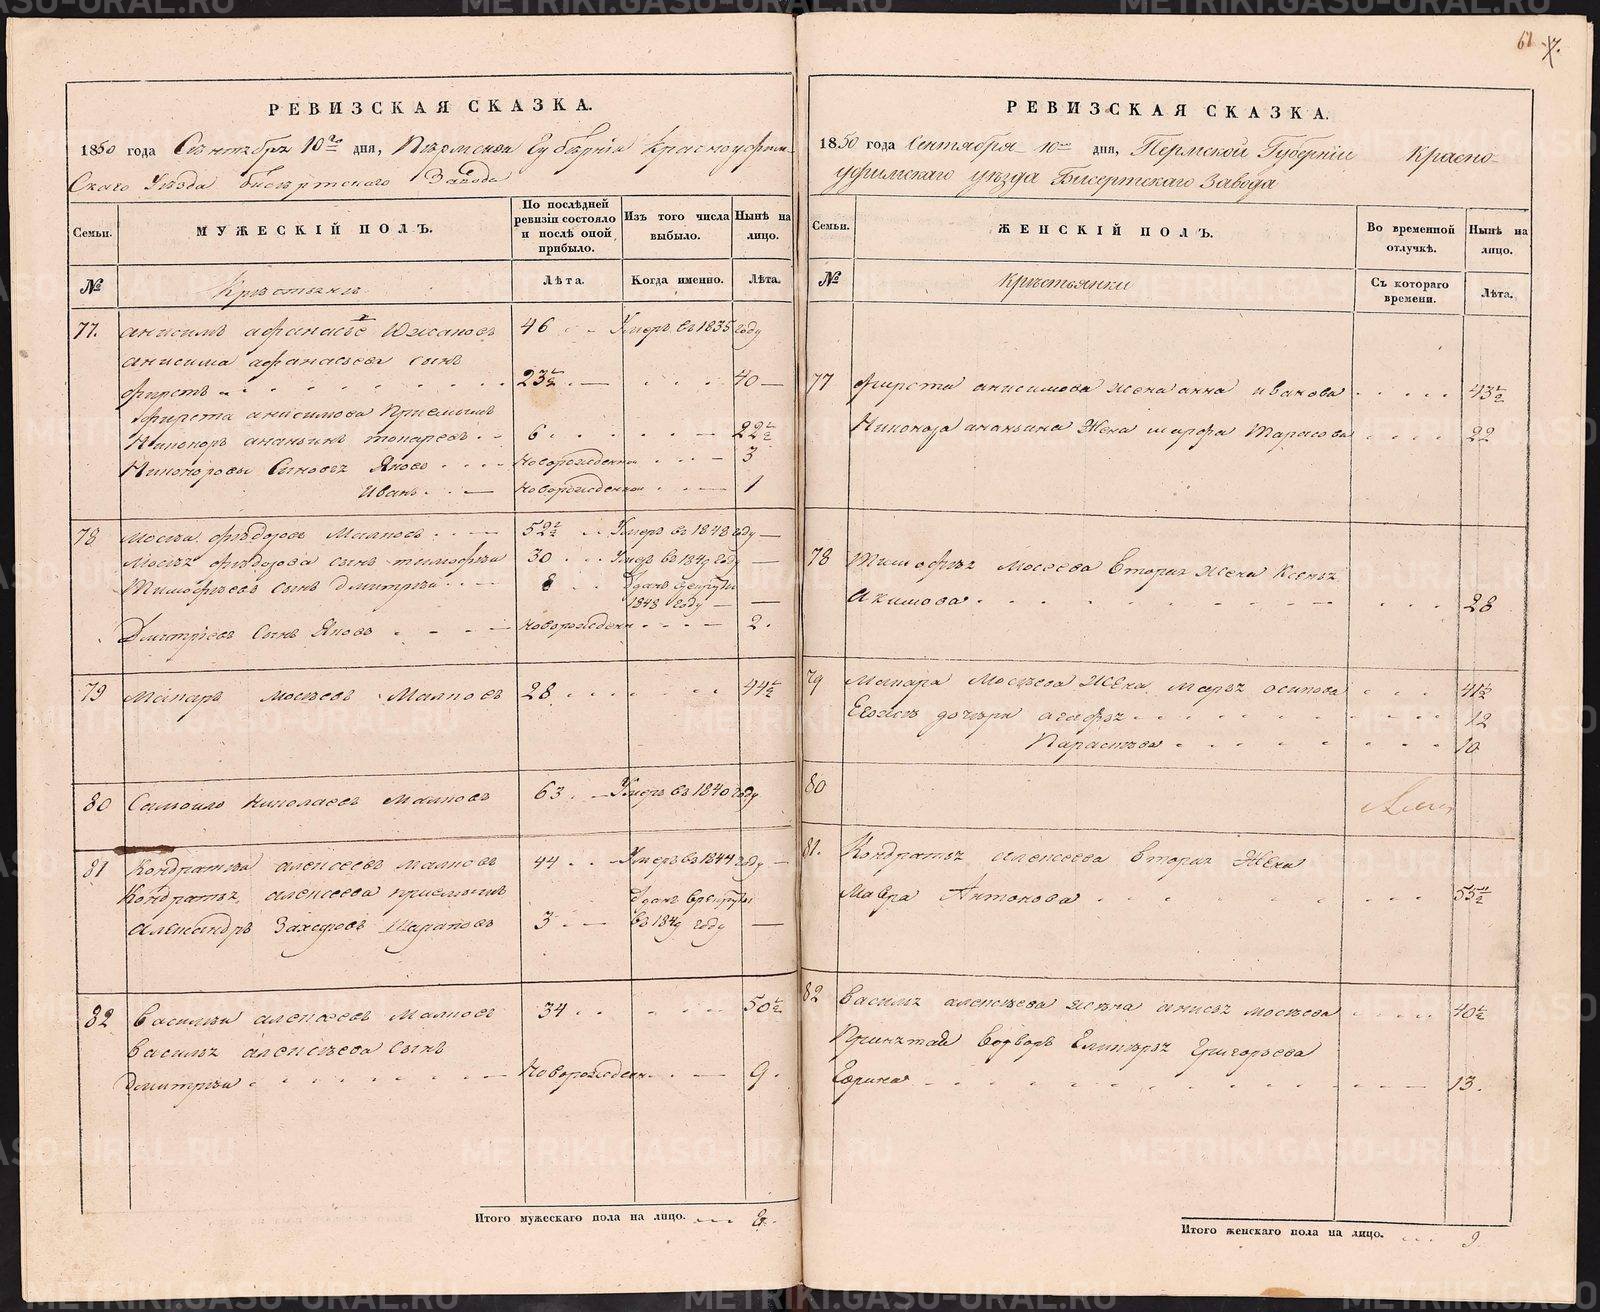 61 7.
РЕВИЗСКАЯ СКАЗКА.
1850 года Сентября 10го дня, Пермской Губернiи Красноуфим-
скаго Уезда бисертского Завода
Семьи.
МУЖЕСКІЙ ПОЛЪ.
По послѣдней ревизіи состояло и послѣ оной прибыло.
Изъ того числа выбыло.
Нынѣ на лицо.
№
Крестьяне
Лѣта.
Когда именно.
Лѣта.
77. анисимъ афанасьевъ Южаковъ 46 Умеръ въ 1835 году
анисима афанасьева сынъ
фирстъ 23½ 40
фирста анисимова Приемышъ
Никоноръ ананьинъ токаревъ 6 22½
Никоноровы Сыновья Яковъ Новорожденной 3
Иванъ Новорожденной 1
78 мосей федоровъ Малковъ 52½ Умеръ въ 1848 году
Мосея федорова сынъ тимофеи 30 Умеръ въ 1849 году
Тимофеевъ сынъ дмитреи 8 Зданъ в рекруты
1848 году
Дмитреевъ сынъ Яковъ Новорожден 2.
79 Макаръ мосеевъ Малковъ 28 44½
80 Самоило Николаевъ Малковъ 63 Умеръ въ 1840 году
81 Кондратеи алексеевъ малковъ 44 Умеръ въ 1844 году
Кондратья алексеева приемышъ Зданъ в рекруты
Александръ Захаровъ Шараповъ 3 въ 1849 году
82 Василеи алексеевъ Малковъ 34 50½
Василья алексеева сынъ
Дмитреи Новорожден 9.
Итого мужескаго пола на лицо. 8.
РЕВИЗСКАЯ СКАЗКА.
1850 года Сентября 10го дня, Пермской Губерніи Красно-
уфимскаго уезда Бисертскаго Завода
Семьи.
ЖЕНСКІЙ ПОЛЪ.
Во временной отлучкѣ.
Нынѣ на лицо.
№
крестьянки
Съ котораго времени.
Лѣта.
77 фирста анисимова жена анна иванова 43½
Никонора ананьина жена марфа Тарасова 22
78 Тимофея Мосеева вторая жена Ксенья
Акимова 28
79 Макара Мосеева жена марья осипова 41½
Еваиъ дочери агафья 12
Парасковья 10
80
81. Кондратья алексеева вторая Жена
Мавра Антонова 55½
82 василья алексеева жена анисья мосеева 40½
Принятая водворъ Григорьева
Ефимья 13.
Итого женскаго пола на лицо. 9.